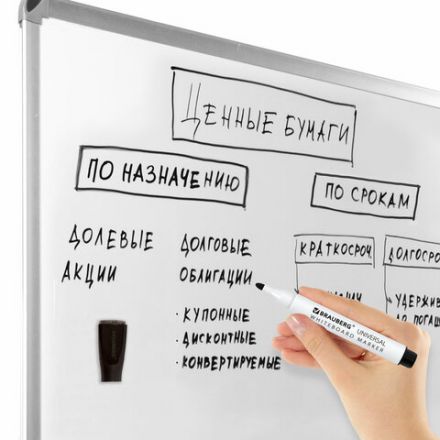 ЦЕННЫЕ БУМАГИ
ПО НАЗНАЧЕНИЮ
ПО СРОКАМ
ДОЛЕВЫЕ
АКЦИИ
ДОЛГОВЫЕ
ОБЛИГАЦИИ
· КУПОННЫЕ
· ДИСКОНТНЫЕ
· КОНВЕРТИРУЕМЫЕ
КРАТКОСРОЧ
ДОЛГОСРО
УДЕРЖИВ
ДО ПОГАШ
BRAUBERG UNIVERSAL
WHITEBOARD MARKER